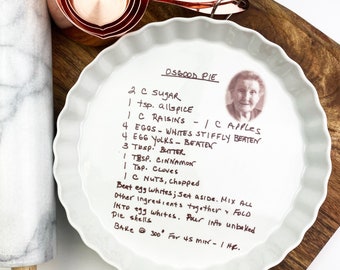 OSGOOD PIE
2 C SUGAR
1 tsp. allspice
1 C RAISINS - 1 C APPLES
4 EGGS - WHITES STIFFLY BEATEN
4 EGG YOLKS - BEATEN
3 TBSP. BUTTER
1 TBSP. CINNAMON
1 Tsp. CLOVES
1 C NUTS, CHOPPED
Beat egg whites; Set aside. Mix ALL
Other ingredients together & FOLD
INTO egg whites. Pour into unbaked
Pie shells
BAKE @ 300° FOR 45 MIN - 1 HR.